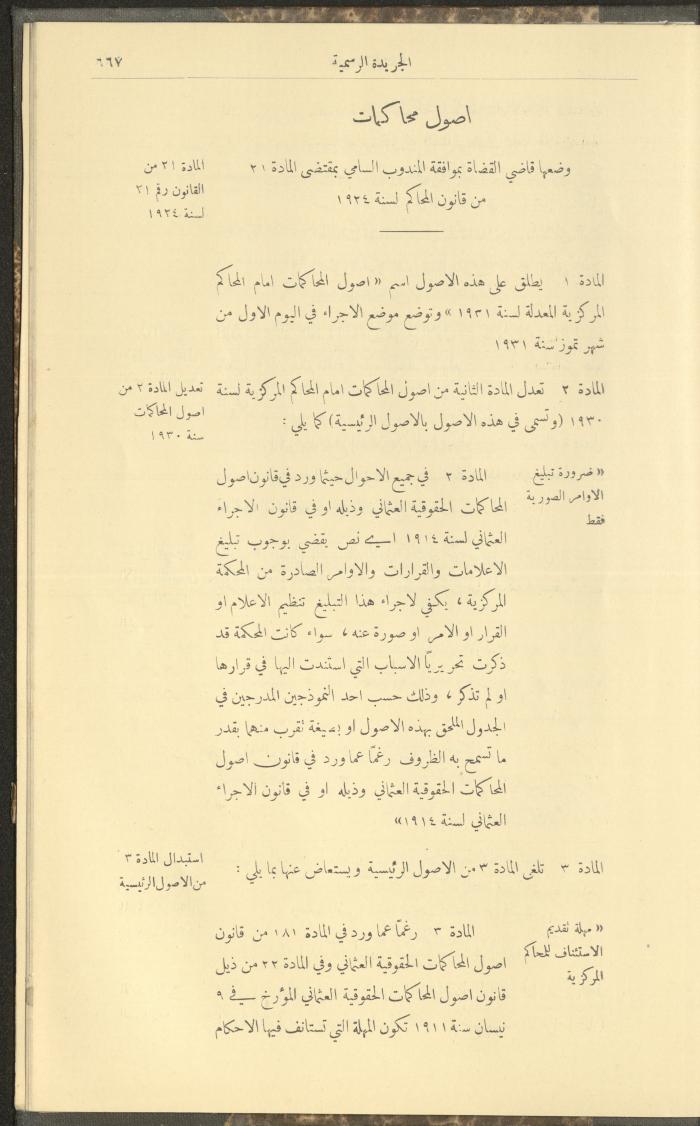 الجريدة الرسمية
٦٦٧
اصول محاكمات
وضعها قاضي القضاة بموافقة المندوب السامي بمقتضى المادة ٢١
من قانون المحاكم لسنة ١٩٢٤
المادة ٢١ من
القانون رقم ٢١
لسنة ١٩٢٤
المادة ١ يطلق على هذه الاصول اسم « اصول المحاكمات امام المحاكم
المركزية المعدلة لسنة ١٩٣١ » وتوضع موضع الاجراء في اليوم الاول من
شهر تموز سنة ١٩٣١
المادة ٢ تعدل المادة الثانية من اصول المحاكمات امام المحاكم المركزية لسنة
١٩٣٠ (وتسمى في هذه الاصول بالاصول الرئيسية) كما يلي :
تعديل المادة ٢ من
اصول المحاكمات
سنة ١٩٣٠
« ضرورة تبليغ
الاوامر الصورية
فقط
المادة ٢ في جميع الاحوال حيثما ورد في قانون اصول
المحاكمات الحقوقية العثماني وذيله او في قانون الاجراء
العثماني لسنة ١٩١٤ اي نص يقضي بوجوب تبليغ
الاعلامات والقرارات والاوامر الصادرة من المحكمة
المركزية ، يكفي لاجراء هذا التبليغ تنظيم الاعلام او
القرار او الامر او صورة عنه ، سواء كانت المحكمة قد
ذكرت تحريريًا الاسباب التي استندت اليها في قرارها
او لم تذكر ، وذلك حسب احد النموذجين المدرجين في
الجدول الملحق بهذه الاصول او بصيغة تقرب منهما بقدر
ما تسمح به الظروف رغمًا عما ورد في قانون اصول
المحاكمات الحقوقية العثماني وذيله او في قانون الاجراء
العثماني لسنة ١٩١٤»
المادة ٣ تلغى المادة ٣ من الاصول الرئيسية ويستعاض عنها بما يلي :
استبدال المادة ٣
من الاصول الرئيسية
« مهلة تقديم
الاستئناف للمحاكم
المركزية
المادة ٣ رغمًا عما ورد في المادة ١٨١ من قانون
اصول المحاكمات الحقوقية العثماني وفي المادة ٢٢ من ذيل
قانون اصول المحاكمات الحقوقية العثماني المؤرخ في ٩
نيسان سنة ١٩١١ تكون المهلة التي تستانف فيها الاحكام